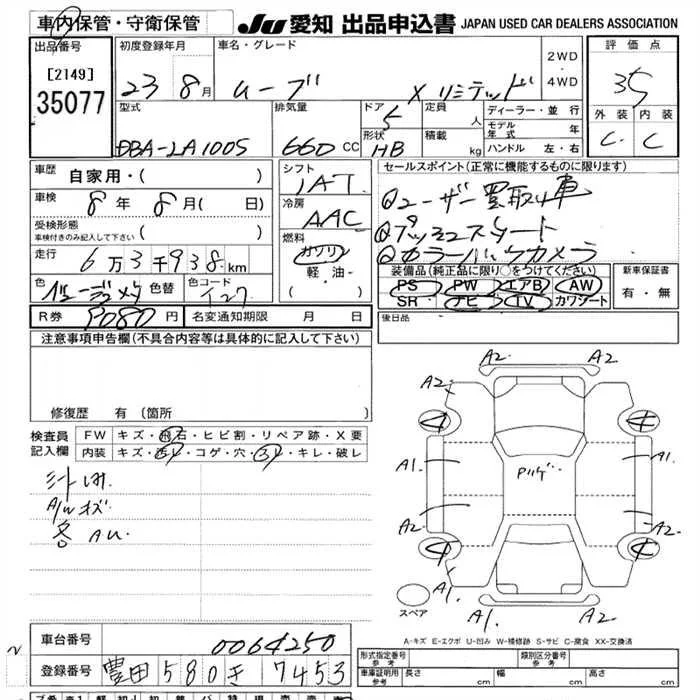 車内保管・守衛保管
JU 愛知 出品申込書 JAPAN USED CAR DEALERS ASSOCIATION
出品番号
[2149]
35077
初度登録年月
23 8月
車名・グレード
ムーブ X リミテッド
2WD・4WD
評価点
3.5
外装 内装
C C
型式
DBA-LA100S
排気量
660 CC
ドア
5
形状
HB
定員
人
積載
kg
ディーラー・並行
モデル年式 年
ハンドル 左・右
車歴
自家用・( )
車検 8年 8月( 日)
受検形態
車検付きのみ記入して下さい ( )
走行 6万3千938km
色 色替
色コード
T27
シフト
IAT
冷房
AAC
燃料
ガソリン
軽油・
セールスポイント(正常に機能するものに限ります)
①ユーザー買取車
②プッシュスタート
③カラーバックカメラ
装備品(純正品に限り○をつけてください)
PS PW エアB AW
SR ナビ TV カワシート
新車保証書
有・無
R券 円
名変通知期限 月 日
後日品
注意事項申告欄(不具合内容等は具体的に記入して下さい)
修復歴 有(箇所
検査員記入欄
FW キズ・飛石・ヒビ割・リペア跡・X要
内装 キズ・汚レ・コゲ・穴・スレ・キレ・破レ
シートしみ
A/Wキズ
各 AU
A2 A2
A2 A2
A1 A1
A2 A2
A1 A1
スペア
A-キズ E-エクボ U-凹み W-補修跡 S-サビ C-腐食 XX-交換済
車台番号 0064250
登録番号 豊田 580 き 7453
形式指定番号
参考
類別区分番号
参考
車庫証明用
参考
長さ cm 幅 cm 高さ cm